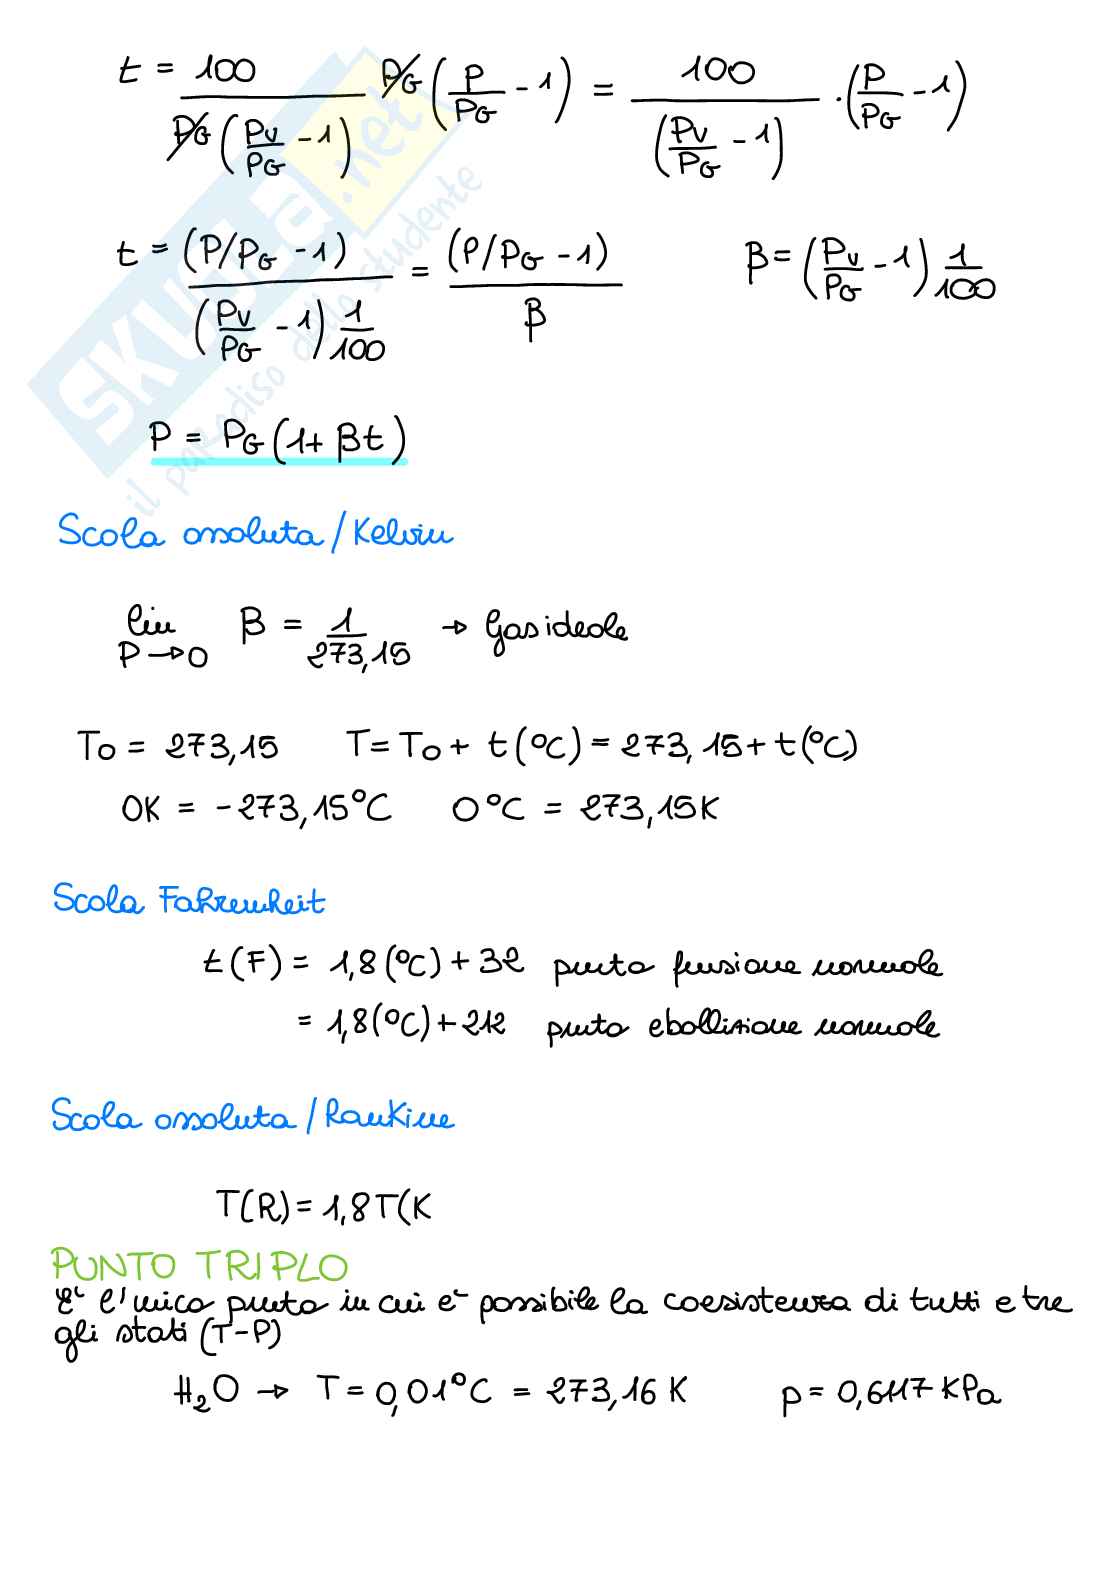 t = 100 / (PG (Pv/PG - 1)) PG (P/PG - 1) = 100 / (Pv/PG - 1) · (P/PG - 1)
t = (P/PG - 1) / ((Pv/PG - 1) 1/100) = (P/PG - 1) / β    β = (Pv/PG - 1) 1/100
P = PG (1 + βt)
Scala assoluta / Kelvin
lim P→0 β = 1/273,15 → Gas ideale
T0 = 273,15    T = T0 + t (°C) = 273,15 + t (°C)
0K = -273,15°C    0°C = 273,15K
Scala Fahrenheit
t (F) = 1,8 (°C) + 32 punto fusione normale
= 1,8 (°C) + 212 punto ebollizione normale
Scala assoluta / Rankine
T(R) = 1,8 T(K
PUNTO TRIPLO
E' l'unico punto in cui e' possibile la coesistenza di tutti e tre
gli stati (T-P)
H₂O → T = 0,01°C = 273,16 K    p = 0,6117 KPa
SKUOLA.net
il paradiso dello studente